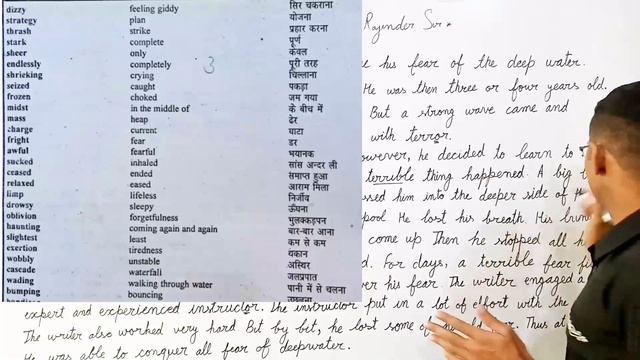 dizzy feeling giddy सिर चकराना
strategy plan योजना
thrash strike प्रहार करना
stark complete पूर्ण
sheer only केवल
endlessly completely पूरी तरह
3
shrieking crying चिल्लाना
seized caught पकड़ा
frozen choked जम गया
midst in the middle of के बीच में
mass heap ढेर
charge current घाटा
fright fear डर
awful fearful भयानक
sucked inhaled सांस अन्दर ली
ceased ended समाप्त हुआ
relaxed eased आराम मिला
limp lifeless निर्जीव
drowsy sleepy ऊँघना
oblivion forgetfulness भुलक्कड़पन
haunting coming again and again बार-बार आना
slightest least कम से कम
exertion tiredness थकान
wobbly unstable अस्थिर
cascade waterfall जलप्रपात
wading walking through water पानी में से चलना
bumping bouncing
Rajender Sir
his fear of the deep water.
He was then three or four years old.
But a strong wave came and
with terror.
owever, he decided to learn to
terrible thing happened. A big
ssed him into the deeper side of
pool. He lost his breath. His
come up Then he stopped all
d. For days, a terrible fear
ver his fear. The writer engaged a
expert and experienced instructor. The instructor put in a lot of effort with the
The writer also worked very hard. But by bet, he lost some of Thus at
He was able to conquer all fear of deepwater.